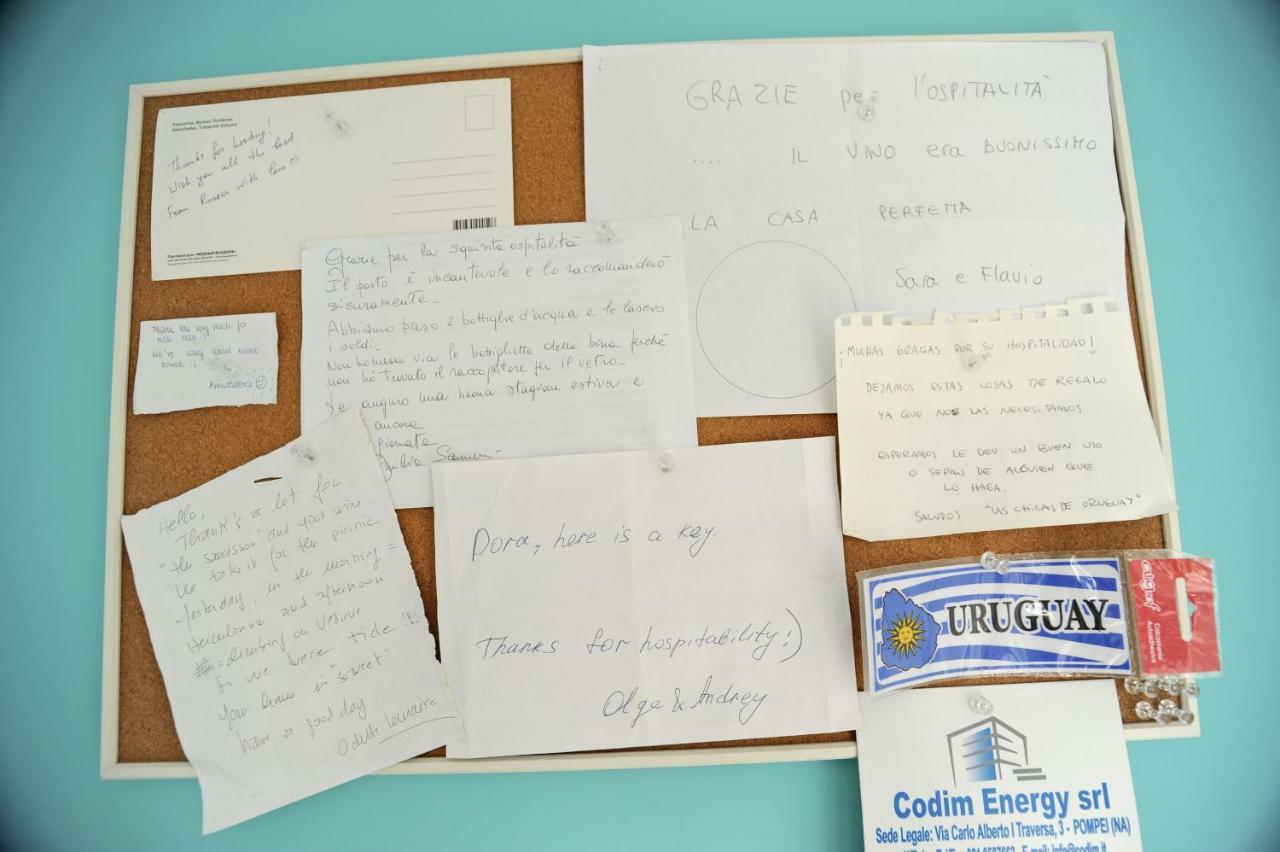 Камчатка. Вулкан Толбачик
Kamchatka. Tolbachik Volcano
Thanks for hosting!
Wish you all the best
From Russia with love
Торговый дом «МЕДНЫЙ ВСАДНИК»
GRAZIE per l'OSPITALITÀ
.... IL VINO era BUONISSIMO
LA CASA PERFETTA
Sara e Flavio
Grazie per la squisita ospitalità
Il posto è incantevole e lo raccomanderò
sicuramente.
Abbiamo preso 2 bottiglie d'acqua e le lascio
i soldi.
Non ho messo via le bottigliette della birra perché
non ho trovato il raccoglitore per il vetro.
Le auguro una buona stagione estiva e
ancora
Thank you very much for
nice stay!
We're sorry about
towel :(
¡MUCHAS GRACIAS POR SU HOSPITALIDAD!
DEJAMOS ESTAS COSAS DE REGALO
YA QUE NO LAS NECESITAMOS
ESPERAMOS LE DEN UN BUEN USO
O SEPAN DE ALGUIEN QUE
LO HAGA.
SALUDOS "LAS CHICAS DE URUGUAY"
Hello,
Thank's a lot for
"the saucisson" and your wine.
We take it for the picinic
Yesterday, in the morning =
Herculanum and afternoon
= climbing on Vesuve.
So we were tide !!.
Your house is "sweet"
have a good day.
Odette
Dora, here is a key.
Thanks for hospitability:)
Olga & Andrey
URUGUAY
Calcomanía
Autoadhesiva
Codim Energy srl
Sede Legale: Via Carlo Alberto I Traversa, 3 - POMPEI (NA)
E-mail: info@codim.it